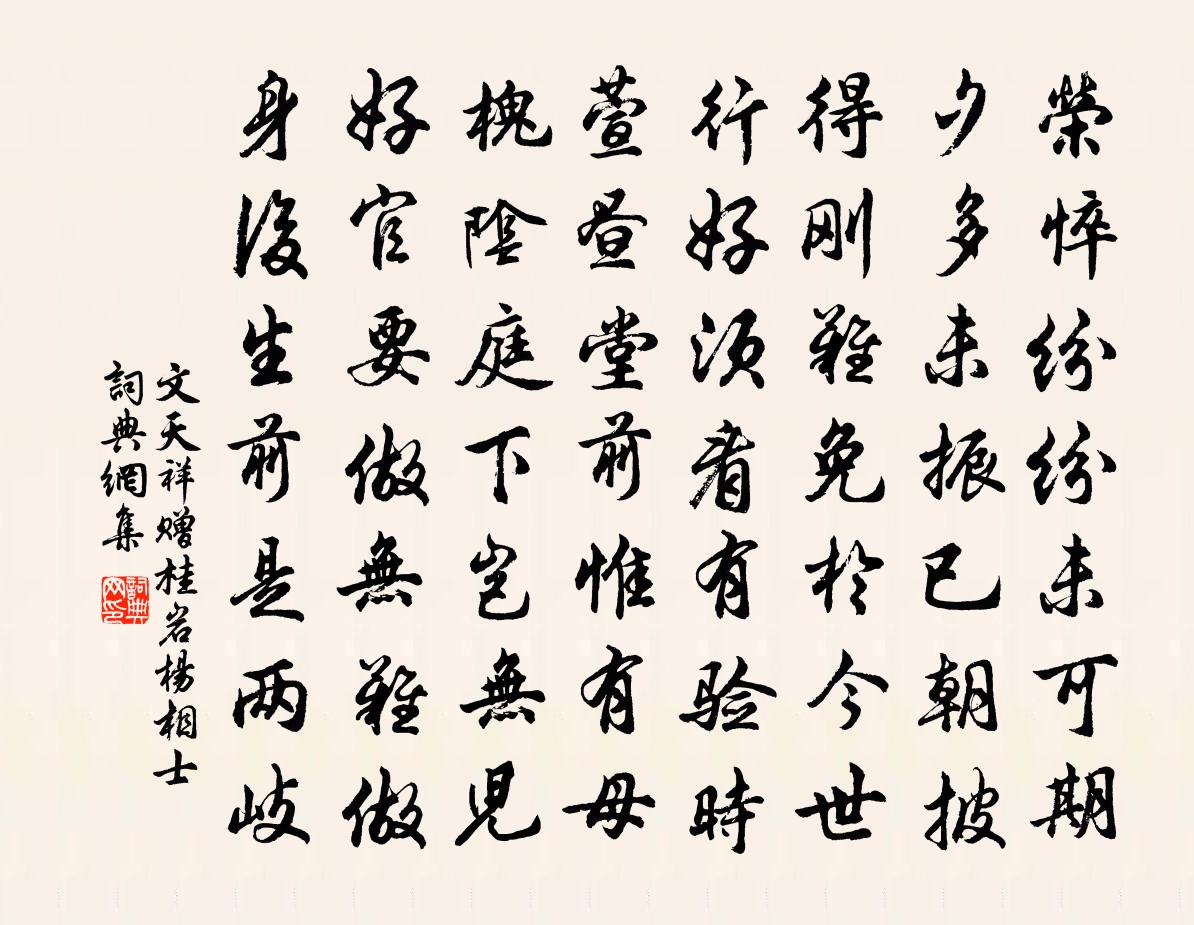 榮悴纷纷未可期
夕多未振已朝披
得刚難免於今世
行好须看有验時
萱昼堂前惟有母
槐陰庭下岂無児
好官要做無難做
身後生前是两岐
文天祥赠桂岩楊相士
詞典網集
詞典网印